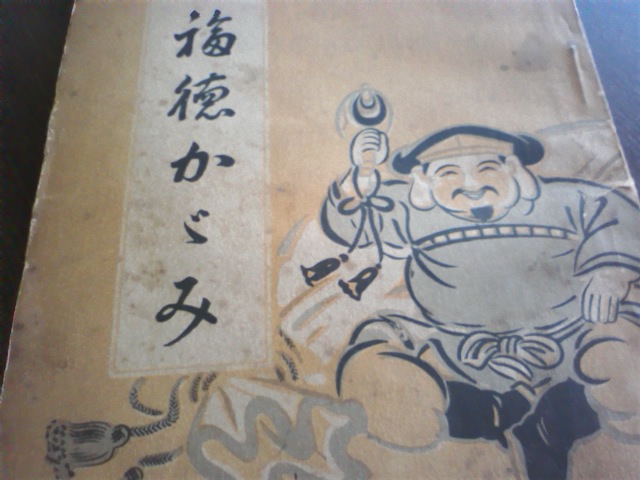 福徳かゞみ